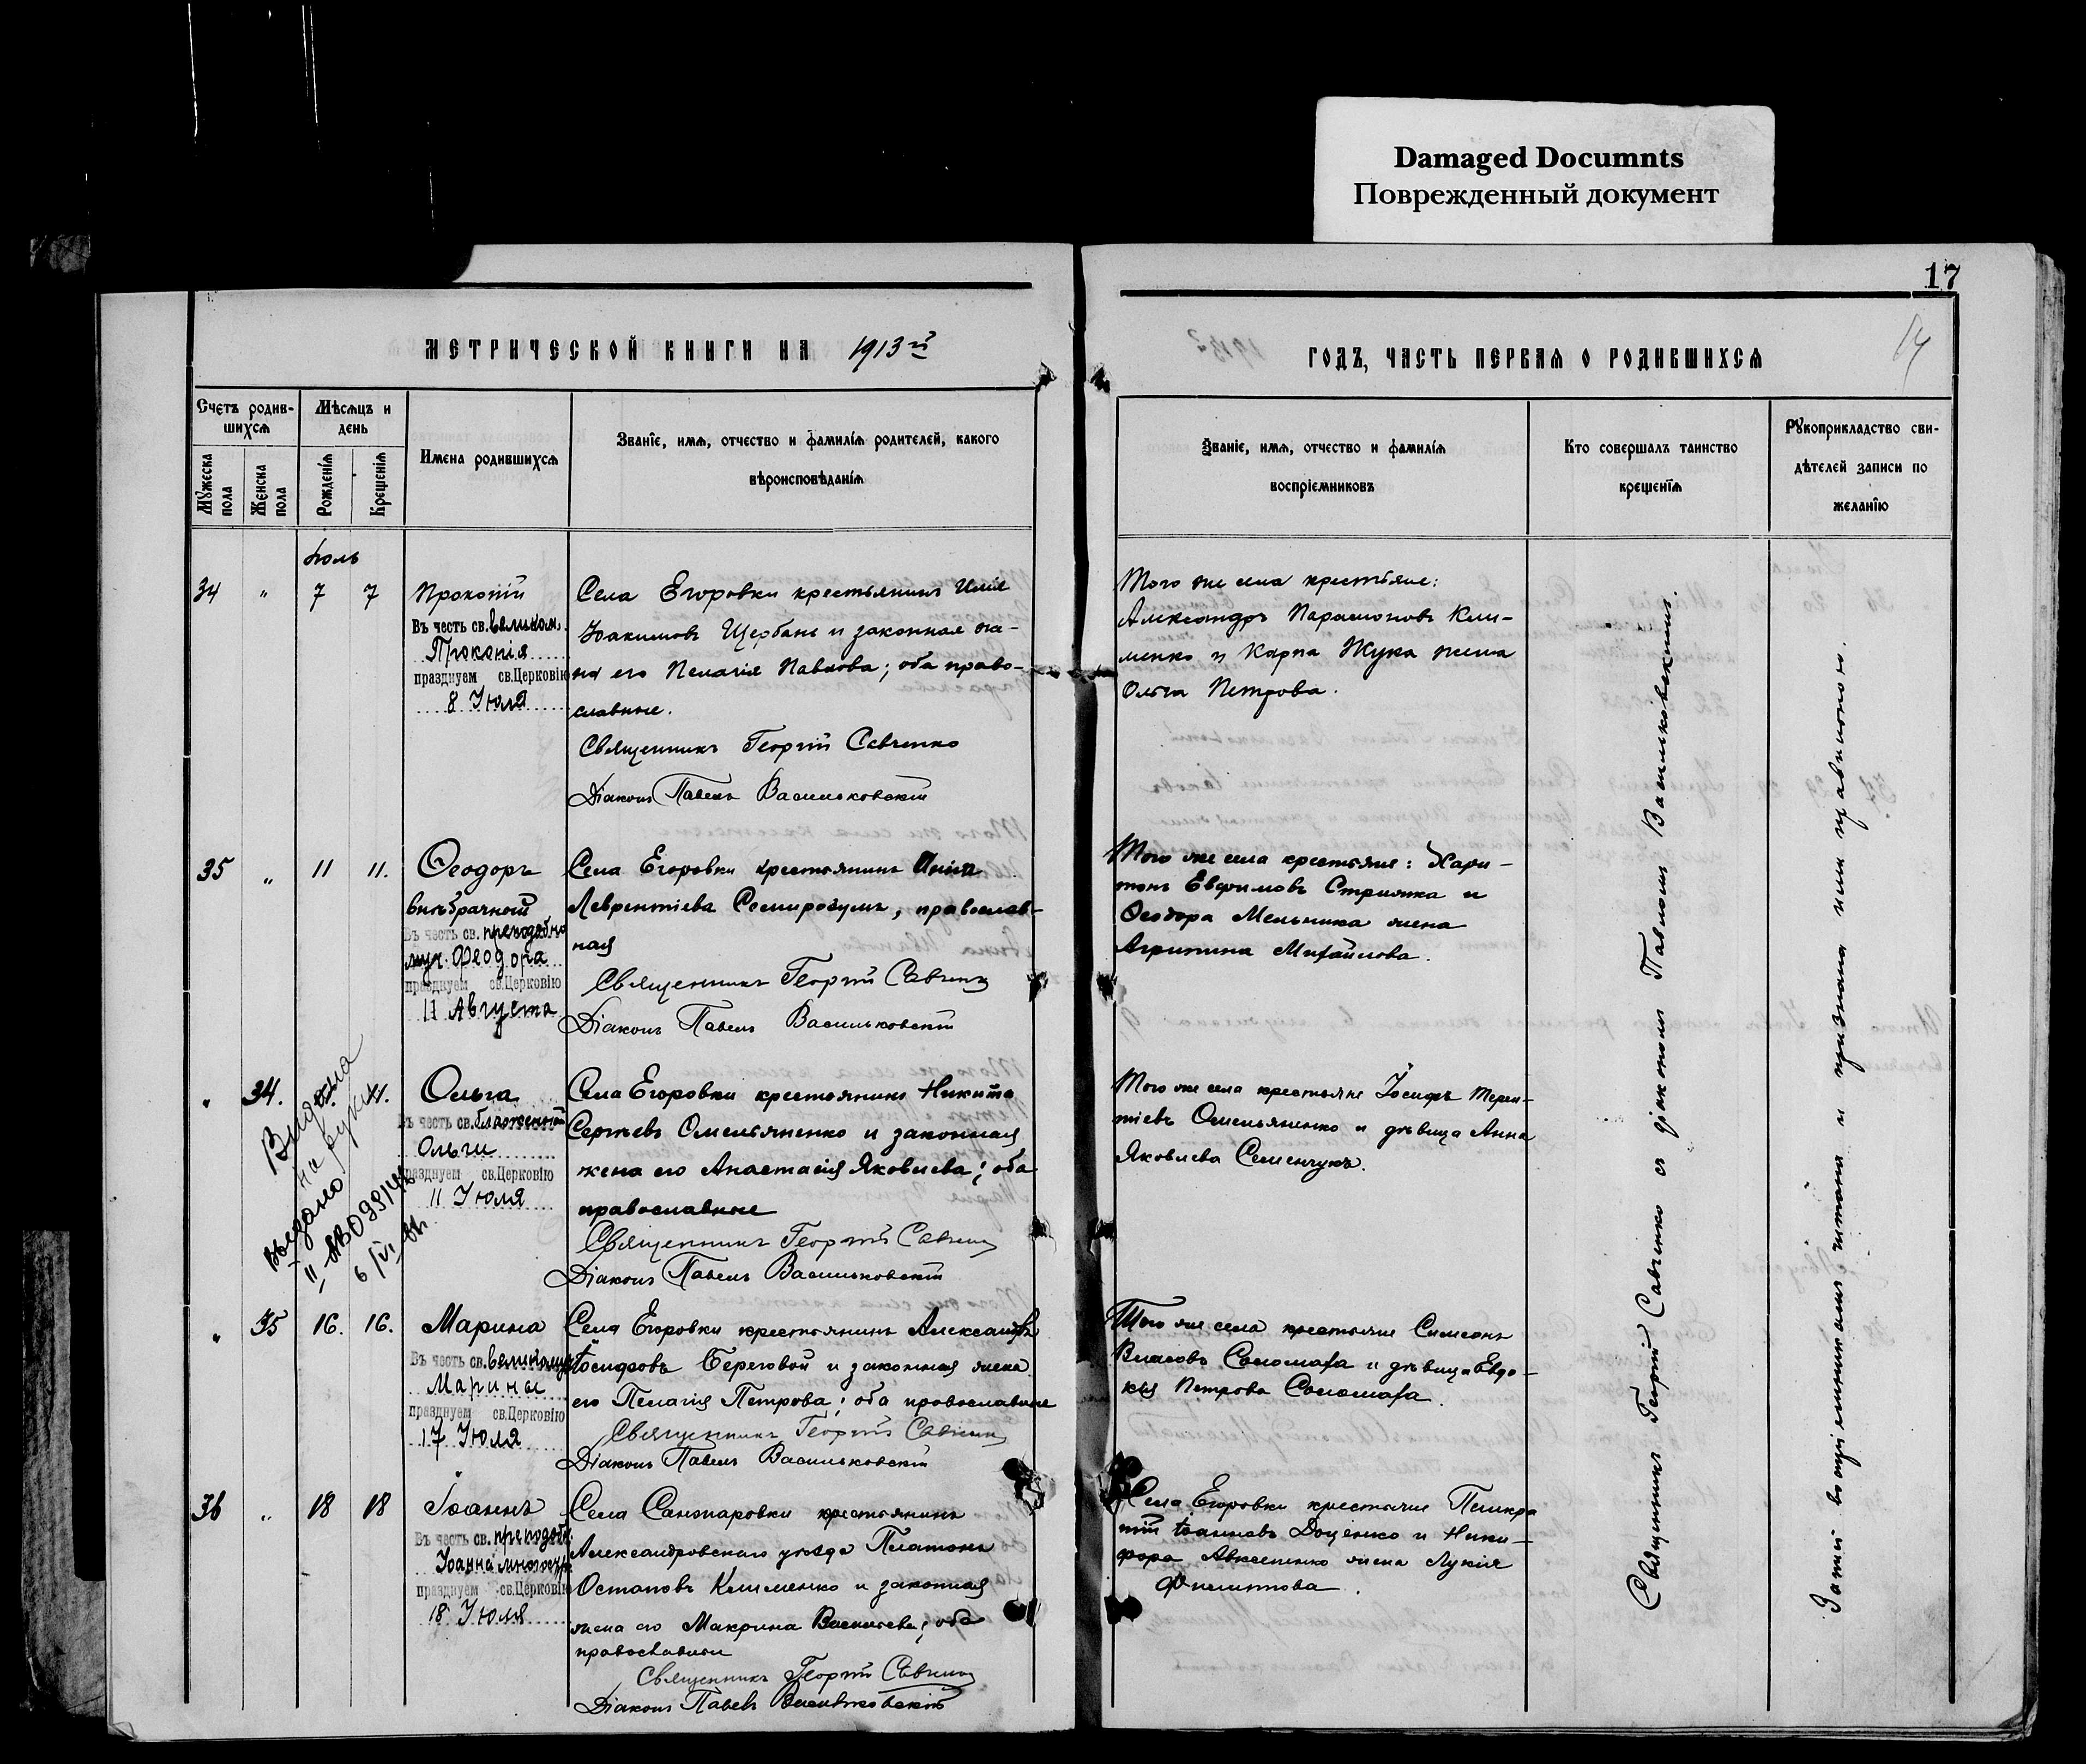 Damaged Documnts
Поврежденный документ
17
17
МЕТРИЧЕСКОЙ КНИГИ НА 1913й
ГОДЪ, ЧАСТЬ ПЕРВАЯ О РОДИВШИХСЯ
Счетъ родив-
шихся
Мужеска пола
Женска пола
Мѣсяцъ и
день
Рожденія
Крещенія
Имена родившихся
Званіе, имя, отчество и фамилія родителей, какого
вѣроисповѣданія
Званіе, имя, отчество и фамилія
воспріемниковъ
Кто совершалъ таинство
крещенія
Рукоприкладство сви-
дѣтелей записи по
желанію
Іюль
34 " 7 7
Прокопій
Въ честь св. великом.
Прокопія
празднуем св.Церковію
8 Іюля
Села Егоровки крестьянинъ Илія
Іоакимовъ Щербань и законная же-
на его Пелагія Павлова; оба право-
славные.
Священникъ Георгій Савченко
Діаконъ Павелъ Васильковскій
Того же села крестьяне:
Александръ Парамоновъ Кли-
менко и Карпа Жука жена
Ольга Петрова.
35 " 11 11.
Ѳеодоръ
внѣбрачный
Въ честь св. преподобно
муч. Феодора
празднуем св.Церковію
11 Августа
Села Егоровки крестьянина
Лаврентіева Семирозумъ, православ-
ная
Священникъ Георгій Савченко
Діаконъ Павелъ Васильковскій
Того же села крестьяне: Хари-
тонъ Евфимовъ Стрияка и
Ѳеодора Мельника жена
Агрипина Михайлова.
" 34. 11.
Ольга
Въ честь св. блаженной
Ольги
празднуем св.Церковію
11 Іюля
Выдана
на руки
выдано
II-АВ
6/VI
Села Егоровки крестьянинъ Никита
Сергѣевъ Омельяненко и законная
жена его Анастасія Яковлева; оба
православные
Священникъ Георгій Савченко
Діаконъ Павелъ Васильковскій
Того же села крестьяне Іосифъ Терен-
тіевъ Омельяненко и дѣвица Анна
Яковлева Семенчукъ.
" 35 16. 16.
Марина
Въ честь св. великомуч
Марины
празднуем св.Церковію
17 Іюля
Села Егоровки крестьянинъ Александръ
Іосифовъ Береговой и законная жена
его Пелагія Петрова; оба православные
Священникъ Георгій Савченко
Діаконъ Павелъ Васильковскій
Того же села крестьяне Симеонъ
Власовъ Саломаха и дѣвица Евдо-
кія Петрова Саломаха.
36 " 18 18
Іоаннъ
Въ честь св. преподобн.
Іоанна многостр.
празднуем св.Церковію
18 Іюля
Села Санжаровки крестьянинъ
Александровскаго уѣзда Платонъ
Остаповъ Клименко и законная
жена его Макрина Васильева; оба
православные
Священникъ Георгій Савченко
Діаконъ Павелъ Васильковскій
Села Егоровки крестьяне Панкра-
тій Іоанновъ Доценко и Ники-
фора Авксененко жена Лукія
Филиппова.
Священникъ Георгій Савченко съ діакономъ Павломъ Васильковскимъ.
Запись воспріемникамъ читана и признана ими правильною.